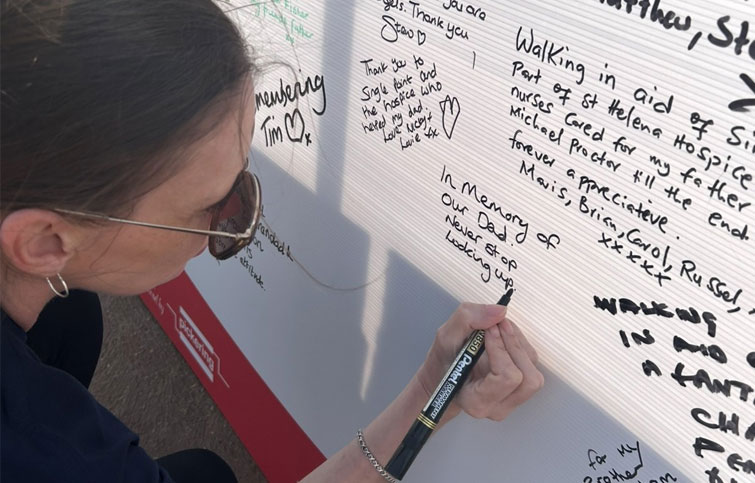 you are
gels. Thank you
Stew
Thank you to
Single Point and
the hospice who
helped my dad.
membering
Tim x
Walking in aid of Sin
Part of St Helena Hospice
nurses cared for my father
Michael Proctor till the end
forever appreciateve.
Mavis, Brian, Carol, Russel,
xxxxx
Matthew, St
In Memory of
Our Dad.
Never Stop
Looking up
attitude.
WALKING
IN AID
A FANT
CHA
for my
Brother
pickering
Pentel